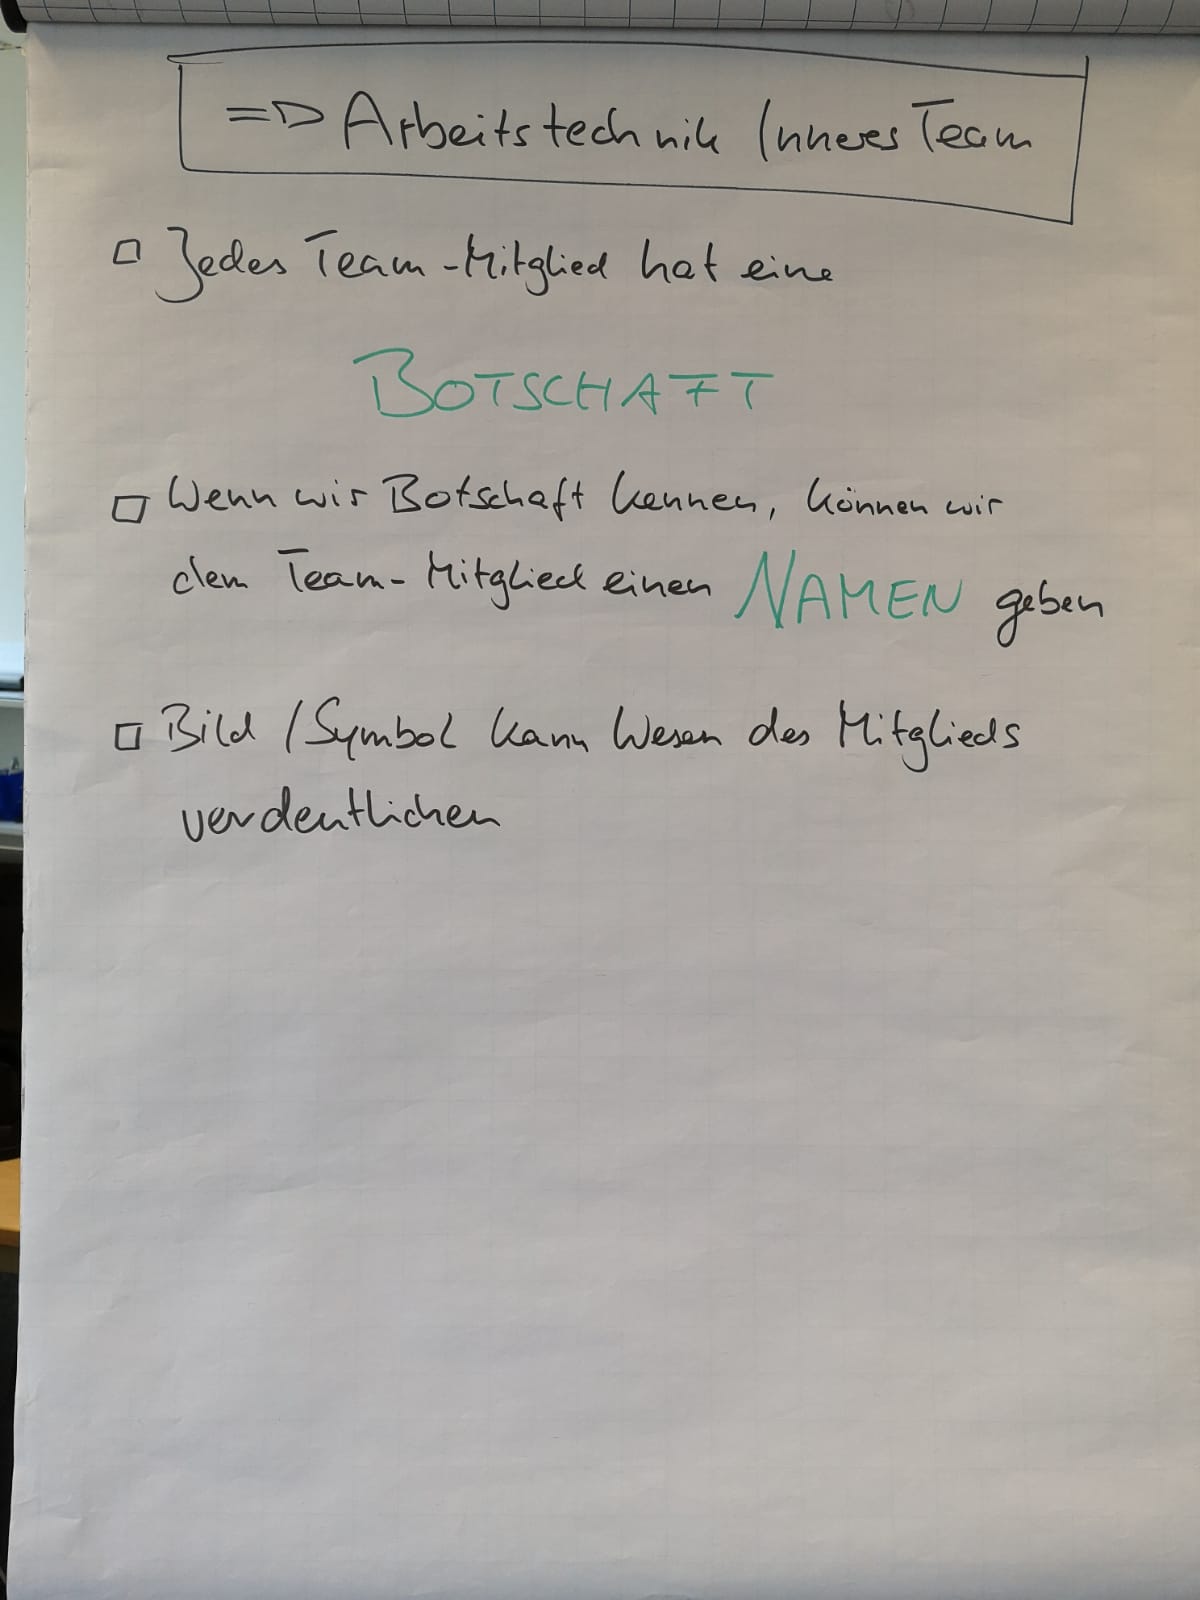 => Arbeitstechnik Inneres Team
□ Jedes Team-Mitglied hat eine
BOTSCHAFT
□ Wenn wir Botschaft kennen, können wir
dem Team-Mitglied einen NAMEN geben
□ Bild / Symbol kann Wesen des Mitglieds
verdeutlichen